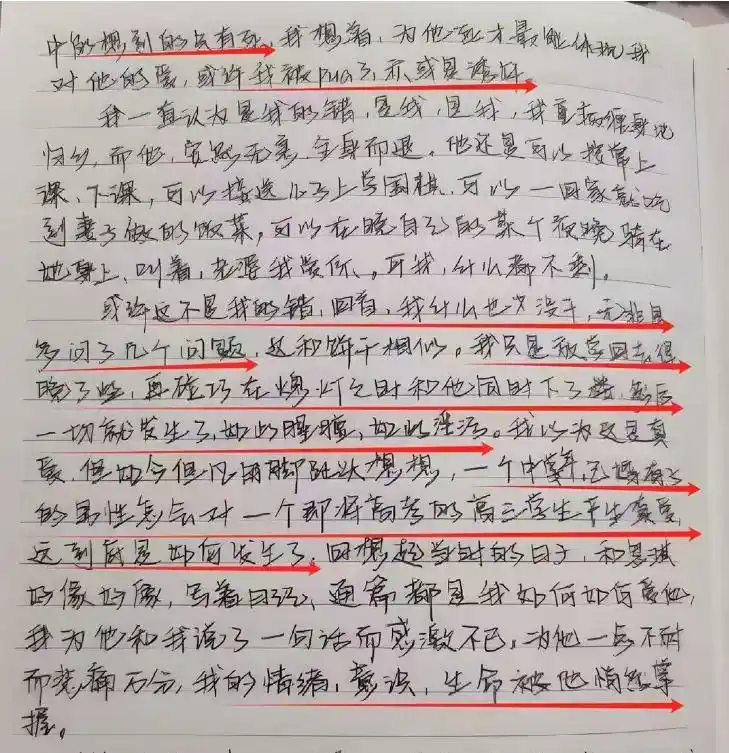 中的想到的只有死，我想着，为他死才最能体现我
对他的爱，或许我被pua了，亦或是
我一直认为是我的错，是我，是我，我
归乡，而他，安然无恙，全身而退。他还是可以按常上
课、下课，可以接送儿子上学围棋，可以一回家就吃
到妻子做的饭菜，可以在晚自习的某个夜晚骑在
她身上，叫着，老婆我爱你，可我，什么都不剩。
或许这不是我的错，回看，我什么也没干，无非是
多问了几个问题，这和饼干相似。我只是放学回去得
晚了些，再碰巧在熄灯之时和他同时下了楼，然后
一切就发生了，如此腥膻，如此淫污。我以为这是真
爱，但如今但凡用脚趾头想想，一个中年，已婚有子
的男性怎会对一个即将高考的高三学生产生真爱，
这到底是如何发生了，回想起当时的日子，和思琪
好像好像，写着日记，通篇都是我如何如何爱他，
我为他和我说了一句话而感激不已，为他一点不耐
而悲痛万分，我的情绪，意识，生命被他悄然掌
握。